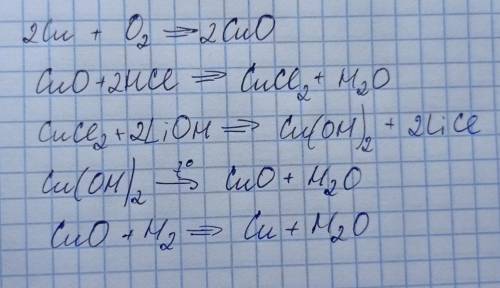 2Cu + O₂ ⇒ 2CuO
CuO + 2HCl ⇒ CuCl₂ + H₂O
CuCl₂ + 2LiOH ⇒ Cu(OH)₂ + 2LiCl
Cu(OH)₂ t° → CuO + H₂O
CuO + H₂ ⇒ Cu + H₂O